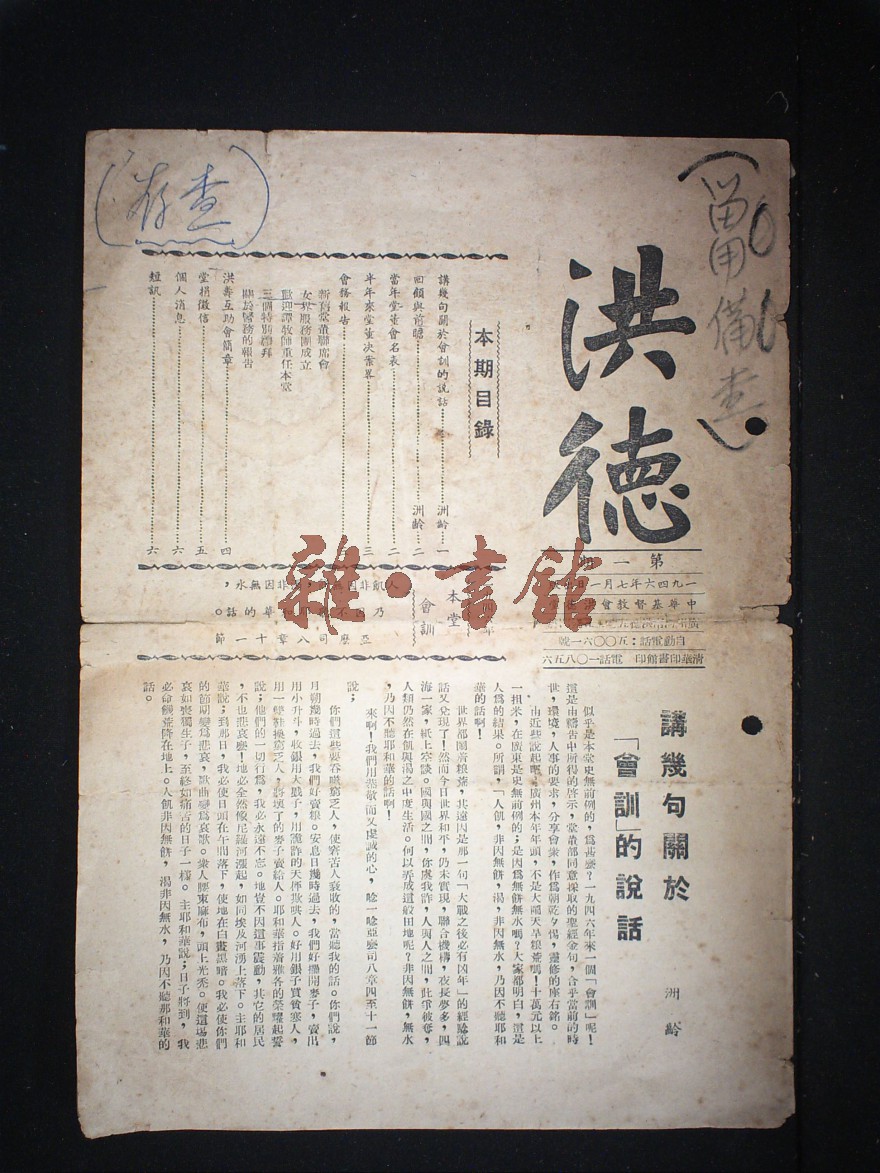 (留備查)
(存查)
洪德
第一期
一九四六年七月一日出版
中華基督教會洪德堂
自動電話：五〇〇六一號
清華印書館印 電話一〇八五六
本期目錄
講幾句關於會訓的說話 洲齡 一
回顧與前瞻 洲齡 二
當年堂董會名表 二
半年來堂董決案畧 三
會務報告
新舊堂董聯席會
女界服務團成立
歡迎譚牧師重任本堂
三個特別禮拜
關於醫務的報告
洪壽互助會簡章 四
堂捐徵信 五
個人消息 六
短訊 六
本堂
會訓
人飢非因無餅，渴非因無水，
乃因不聽耶和華的話。
亞麼司八章十一節
雜·書館
講幾句關於
「會訓」的說話
洲齡
似乎是本堂史無前例的，爲甚麼？一九四六年來一個「會訓」呢！
這是由禱告中所得的啓示，堂董部同意採取的聖經金句，合乎當前的時
世，環境，人事的要求，分享會衆，作爲朝乾夕惕，靈修的座右銘。
由近些說起吧，廣州本年年頭，不是大鬧天旱粮荒嗎！十萬元以上
一担米，在廣東是史無前例的；是因爲無餅無水嗎？大家都明白，這是
人爲的結果。所謂，「人飢，非因無餅，渴，非因無水，乃因不聽耶和
華的話啊！
世界都鬧着粮荒，其遠因是那一句「大戰之後必有凶年」的經驗說
話又兌現了！然而今日世界和平，仍未實現，聯合機構，夜長夢多，四
海一家，紙上空談。國與國之間，你虞我詐，人與人之間，此爭彼奪，
人類仍然在飢與渴之中度生活。何以弄成這般田地呢？非因無餅，無水
，乃因不聽耶和華的話啊！
來啊！我們用恭敬而又虔誠的心，唸一唸亞麼司八章四至十一節
說；
你們這些要吞吸窮乏人，使窮苦人衰敗的，當聽我的話。你們說，
月朔幾時過去，我們好賣糧。安息日幾時過去，我們好擺開麥子，賣出
用小升斗，收銀用大戥子，用詭詐的天秤欺哄人。好用銀子買貧寒人，
用一雙鞋換窮乏人，將壞了的麥子賣給人。耶和華指着雅各的榮耀起誓
說；他們的一切行爲，我必永遠不忘。地豈不因這事震動，其它的居民
，不也悲哀麼！地必全然像尼羅河漲起，如同埃及河湧上落下。主耶和
華說；到那日，我必使日頭在午間落下，使地在白晝黑暗。我必使你們
的節期變爲悲哀，歌曲變爲哀歌。衆人腰束麻布，頭上光禿。使這場悲
哀如喪獨生子，至終如痛苦的日子一樣。主耶和華說；日子將到，我
必命饑荒降在地上。人飢非因無餅，渴非因無水，乃因不聽耶和華的
話。